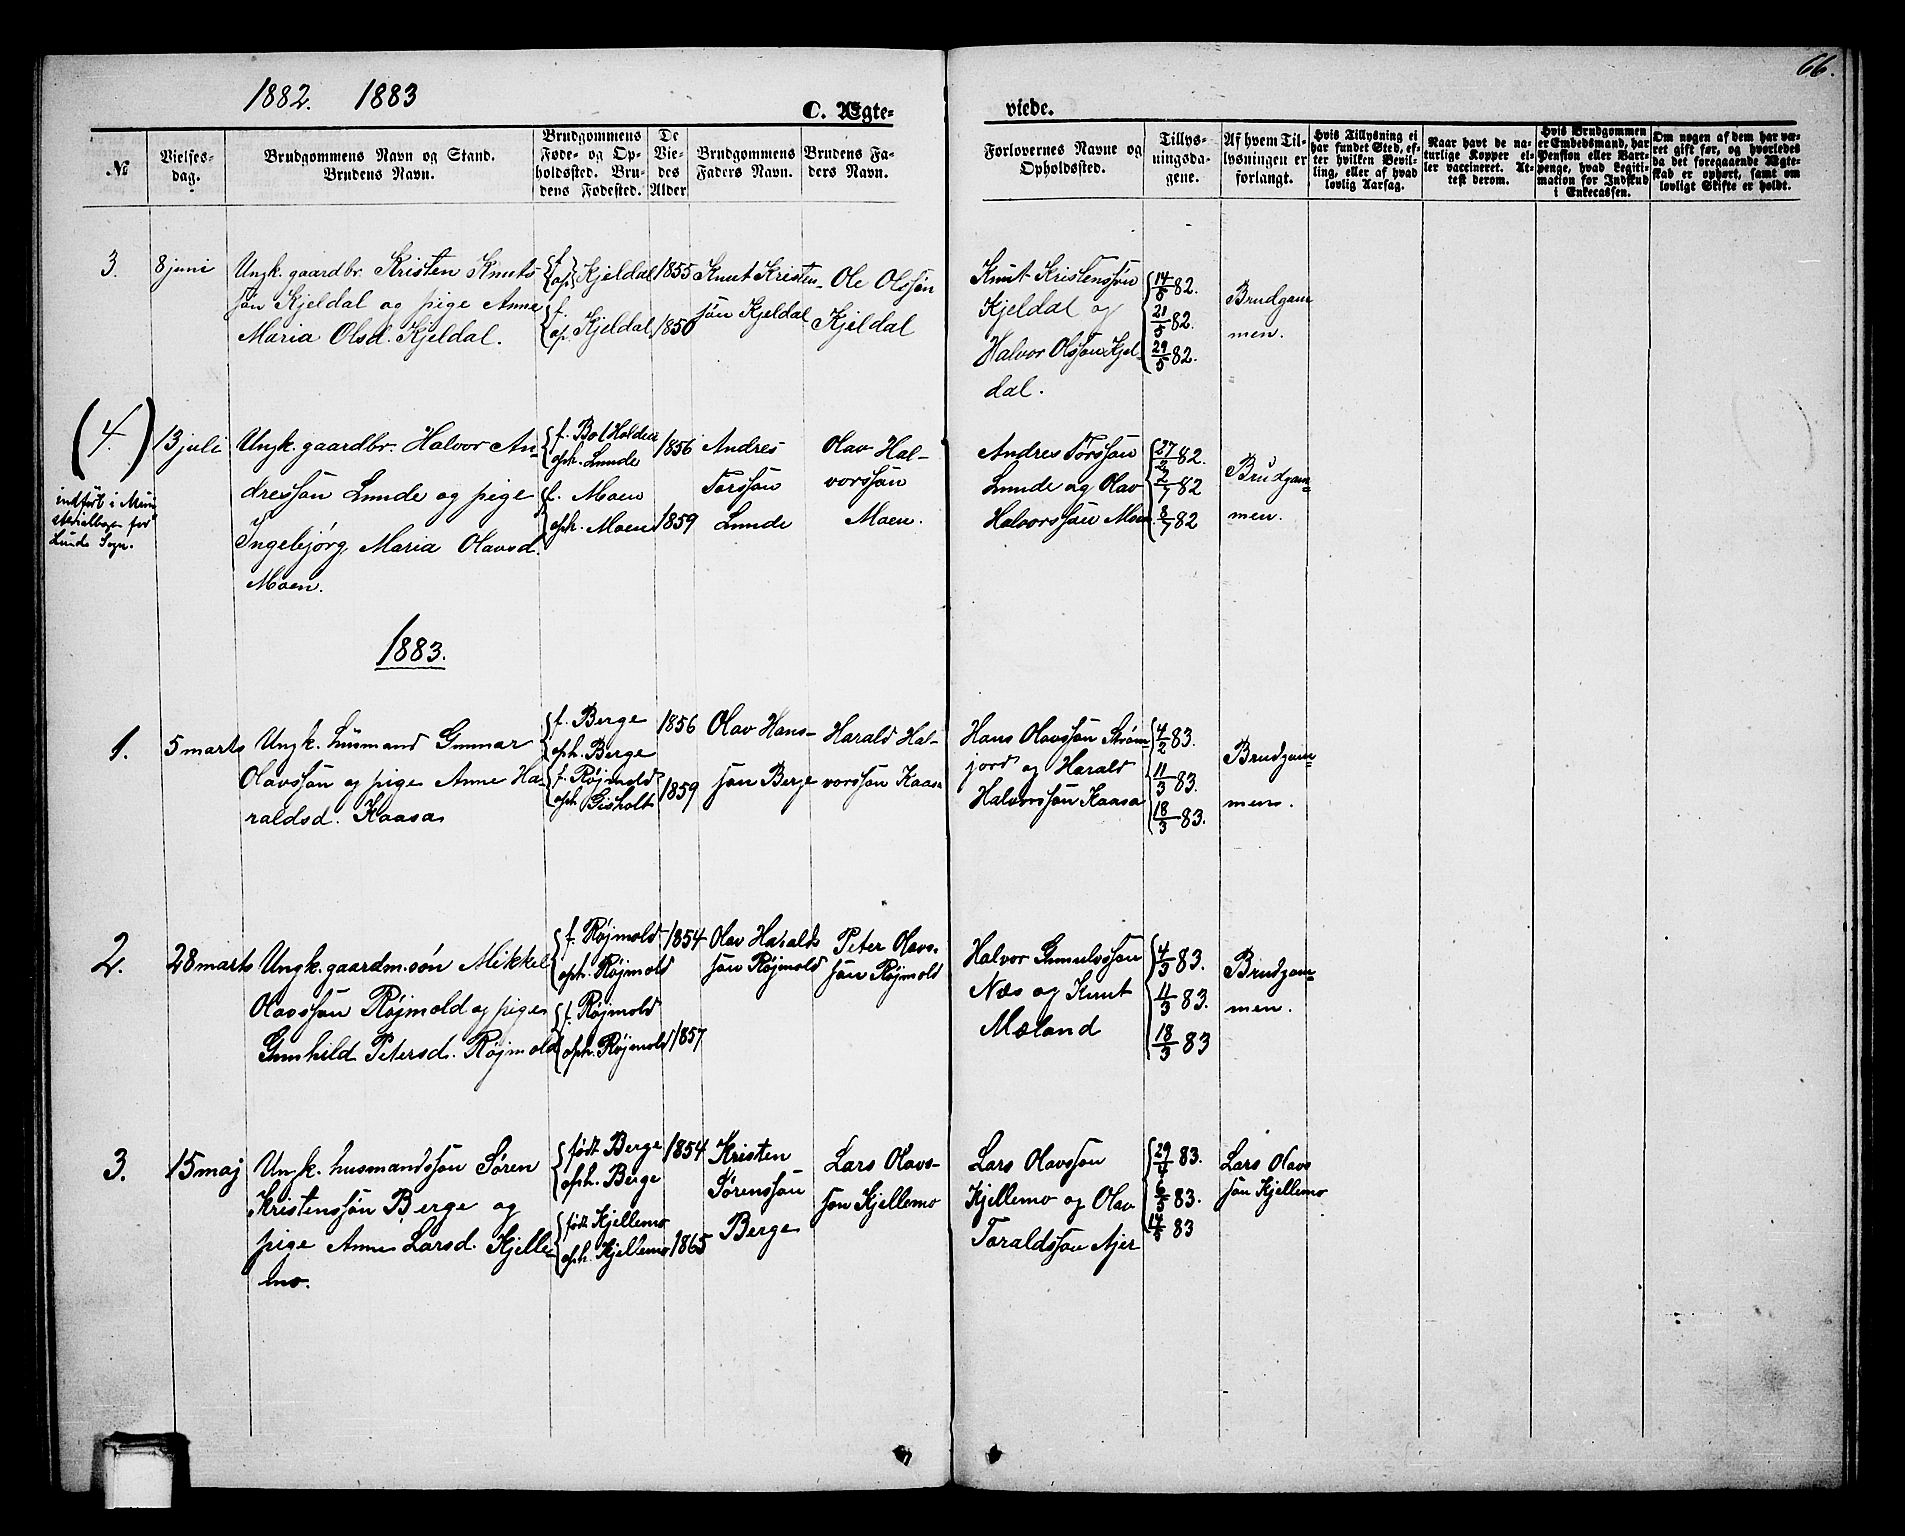 66.
1882. 1883
C. Ægte-
viede.
№
Vielses-
dag.
Brudgommens Navn og Stand.
Brudens Navn.
Brudgommens
Føde- og Op-
holdssted. Bru-
dens Fødested.
De
Vie-
des
Alder
Brudgommens
Faders Navn.
Brudens Fa-
ders Navn.
Forlovernes Navne og
Opholdssted.
Tillys-
ningsda-
gene.
Af hvem Til-
lysningen er
forlangt.
Hvis Tillysning ei
har fundet Sted, ef-
ter hvilken Bevil-
ling, eller af hvad
lovlig Aarsag.
Naar havt de na-
turlige Kopper el-
ler vaccineret. At-
test derom.
Hvis Brudgommen
er Embedsmand, har
Pension eller Vart-
penge, hvad Legiti-
mation for Indskud
i Enkecassen.
Om nogen af dem har væ-
ret gift før, og hvorledes
da det foregaaende Ægte-
skab er ophørt, samt om
lovligt Skifte er holdt.
3.
8 juni
Ungk. gaardbr. Kristen Knuts
søn Kjeldal og pige Anne
Maria Olsd. Kjeldal.
f.
op. Kjeldal
f.
op. Kjeldal
1855
1850
Knut Kristen-
søn Kjeldal
Ole Olssøn
Kjeldal
Knut Kristenssøn
Kjeldal og
Halvor Olssøn Kjel-
dal.
14/5 82.
21/5 82.
29/5 82.
Brudgam
men.
(4.)
indført i Mini
sterialbogen for
Lunde Sogn.
13 juli
Ungk. gaardbr. Halvor An-
dressøn Lunde og pige
Ingebjørg Maria Olavsd.
Moen.
f. Bø i Holden
oph. Lunde
f. Moen
oph. Moen
1856
1859
Andres
Torssøn
Lunde
Olav Hal-
vorssøn
Moen.
Andres Torssøn
Lunde og Olav
Halvorssøn Moen
82.
2/7 82
8/7 82
Brudgam-
men.
1883.
1.
5 marts
Ungk. husmand Gunnar
Olavssøn og pige Anne Ha-
raldsd. Kaasa
f. Berge
oph. Berge
f. Røjmold
oph. Gisholt
1856
1859
Olav Hans-
søn Berge
Harald Hal-
vorssøn Kaasa
Hans Olavssøn Strøm-
jord og Harald
Halvorssøn Kaasa
4/2 83.
11/3 83.
18/3 83.
Brudgam-
men.
2.
28 marts
Ungk. gaardm.søn Mikkel
Olavssøn Røjmold og pige
Gunhild Petersd. Røjmold
f. Røjmold
oph. Røjmold
f. Røjmold
oph. Røjmold
1854
1857
Olav Haralds
søn Røjmold
Peter Olavs-
søn Røjmold
Halvor Gunulvssøn
Næs og Knut
Mæland
4/3 83.
11/3 83.
18/3 83
Brudgam-
men.
3.
15 maj
Ungk. husmandssøn Søren
Kristenssøn Berge og
pige Anne Larsd. Kjelle-
mo.
født Berge
oph. Berge
født Kjellemo
oph. Kjellemo
1854
1865
Kristen
Sørenssøn
Berge
Lars Olavs-
søn Kjellemo
Lars Olavssøn
Kjellemo og Olav
Taraldssøn Ajer
29/4 83.
6/5 83.
14/5 83
Lars Olavs
søn Kjellemo